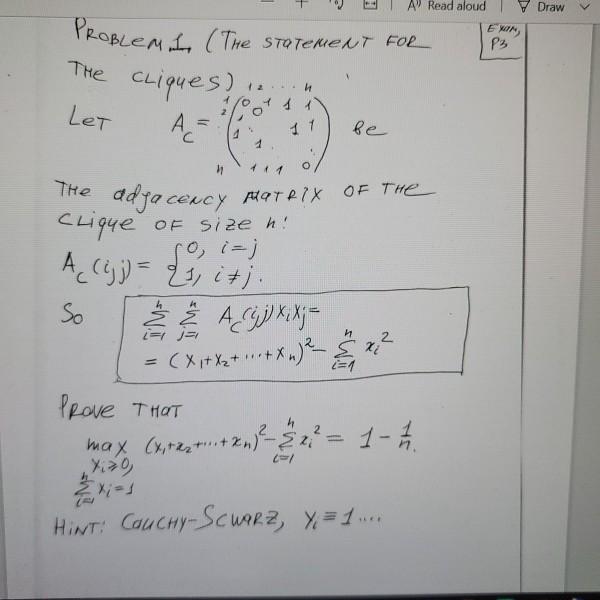 Read aloud
Draw
EXAM, P3
PROBLEM 1. (THE STATEMENT FOR
THE CLIQUES)
1 2 ... n
LET A_C = (0 1 1 1 ... 0) BE
THE ADJACENCY MATRIX OF THE
CLIQUE OF SIZE n:
A_C(i,j) = {0, i=j
1, i≠j.
So ∑_{i=1}^{n} ∑_{j=1}^{n} A_C(i,j) x_i x_j =
= (x_1+x_2+...+x_n)^2 - ∑_{i=1}^{n} x_i^2
PROVE THAT
max (x_1+x_2+...+x_n)^2 - ∑_{i=1}^{n} x_i^2 = 1 - 1/n.
x_i ≥ 0,
∑_{i=1}^{n} x_i = 1
HINT: CAUCHY-SCWARZ, y_i ≡ 1....